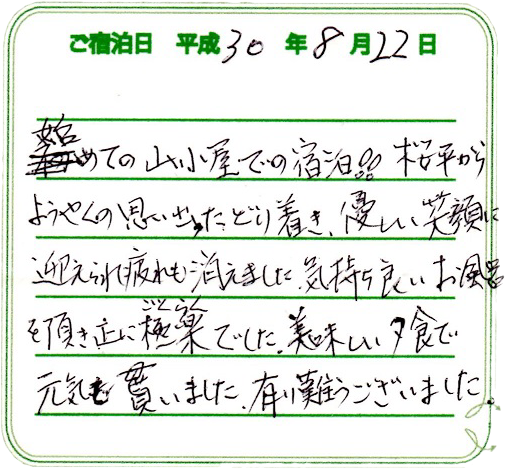 ご宿泊日 平成30年8月22日
始めての山小屋での宿泊!! 桜平から
ようやくの思いでたどり着き、優しい笑顔に
迎えられ疲れも消えました。気持ち良いお風呂
を頂き正に極楽でした。美味しい夕食で
ごくらく
元気も貰いました。有り難うございました。